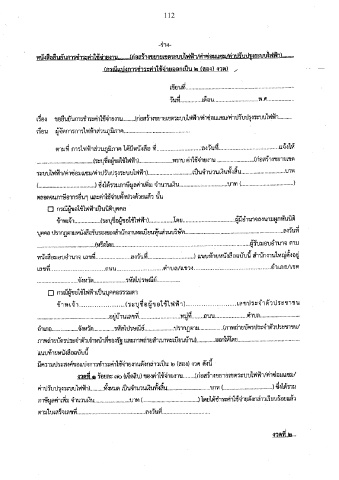 112
-ร่าง-
หนังสือยืนยันการชำระค่าใช้จ่ายงาน..........(ก่อสร้างขยายเขตระบบไฟฟ้า/ค่าซ่อมแซม/ค่าปรับปรุงระบบไฟฟ้า)..........
(กรณีแบ่งการชำระค่าใช้จ่ายออกเป็น ๒ (สอง) งวด)
เขียนที่..............................
วันที่..........เดือน....................พ.ศ..........
เรื่อง ขอยืนยันการชำระค่าใช้จ่ายงาน..........(ก่อสร้างขยายเขตระบบไฟฟ้า/ค่าซ่อมแซม/ค่าปรับปรุงระบบไฟฟ้า..........
เรียน ผู้จัดการการไฟฟ้าส่วนภูมิภาค..............................
ตามที่ การไฟฟ้าส่วนภูมิภาค ได้มีหนังสือ ที่....................ลงวันที่....................แจ้งให้
....................(ระบุชื่อผู้ขอใช้ไฟฟ้า)....................ทราบ ค่าใช้จ่ายงาน....................(ก่อสร้างขยายเขต
ระบบไฟฟ้า/ค่าซ่อมแซม/ค่าปรับปรุงระบบไฟฟ้า)....................เป็นจำนวนเงินทั้งสิ้น....................บาท
(....................) ซึ่งได้รวมภาษีมูลค่าเพิ่ม จำนวนเงิน....................บาท (....................)
ตลอดจนภาษีอากรอื่นๆ และค่าใช้จ่ายทั้งปวงด้วยแล้ว นั้น
☐ กรณีผู้ขอใช้ไฟฟ้าเป็นนิติบุคคล
ข้าพเจ้า..........(ระบุชื่อผู้ขอใช้ไฟฟ้า)..........โดย....................ผู้มีอำนาจลงนามผูกพันนิติ
บุคคล ปรากฏตามหนังสือรับรองของสำนักงานทะเบียนหุ้นส่วนบริษัท....................ลงวันที่
....................(หรือโดย....................ผู้รับมอบอำนาจ ตาม
หนังสือมอบอำนาจ เลขที่..........ลงวันที่..........) แนบท้ายหนังสือฉบับนี้ สำนักงานใหญ่ตั้งอยู่
เลขที่..........ถนน....................ตำบล/แขวง....................อำเภอ/เขต
..........จังหวัด..........รหัสไปรษณีย์..........
☐ กรณีผู้ขอใช้ไฟฟ้าเป็นบุคคลธรรมดา
ข้าพเจ้า..........(ระบุชื่อผู้ขอใช้ไฟฟ้า)..........เลขประจำตัวประชาชน
....................อยู่บ้านเลขที่..........หมู่ที่..........ถนน..........ตำบล..........
อำเภอ..........จังหวัด..........รหัสไปรษณีย์..........ปรากฏตาม..........(ภาพถ่ายบัตรประจำตัวประชาชน/
ภาพถ่ายบัตรประจำตัวเจ้าหน้าที่ของรัฐ และภาพถ่ายสำเนาทะเบียนบ้าน)..........ออกให้โดย..........
แนบท้ายหนังสือฉบับนี้
มีความประสงค์ขอแบ่งการชำระค่าใช้จ่ายงานดังกล่าวเป็น ๒ (สอง) งวด ดังนี้
งวดที่ ๑ ร้อยละ ๗๐ (เจ็ดสิบ) ของค่าใช้จ่ายงาน..........(ก่อสร้างขยายเขตระบบไฟฟ้า/ค่าซ่อมแซม/
ค่าปรับปรุงระบบไฟฟ้า)..........ทั้งหมด เป็นจำนวนเงินทั้งสิ้น....................บาท (....................) ซึ่งได้รวม
ภาษีมูลค่าเพิ่ม จำนวนเงิน..........บาท (....................) โดยได้ชำระค่าใช้จ่ายดังกล่าวเรียบร้อยแล้ว
ตามใบเสร็จเลขที่....................ลงวันที่....................
งวดที่ ๒...